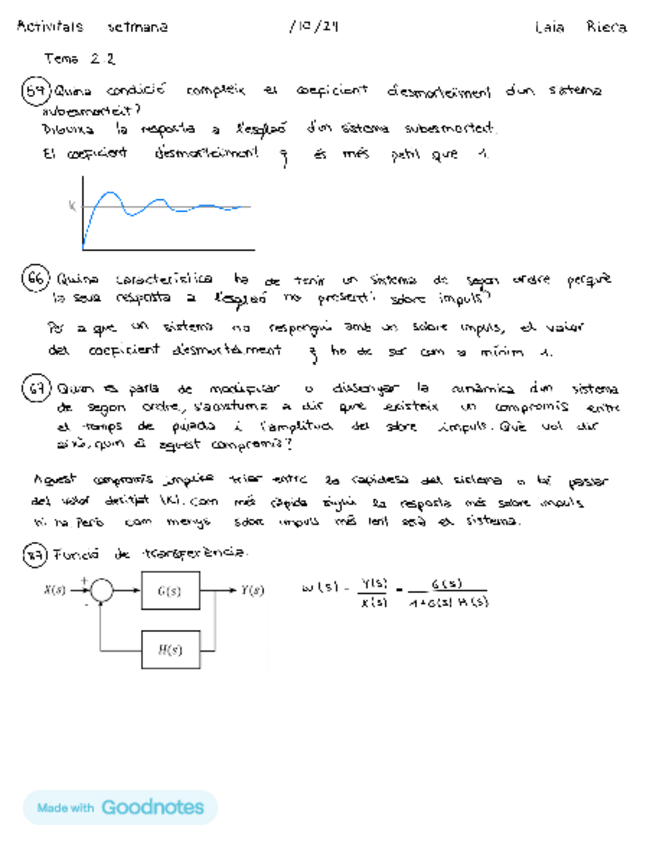 Activitats setmana /10/24 Laia Riera
Tema 2.2
59 Quina condició compleix el coeficient d'esmorteïment d'un sistema
subesmorteït?
Dibuixa la resposta a l'esglaó d'un sistema subesmorteït.
El coeficient d'esmorteïment ζ és més petit que 1.
K
66 Quina característica ha de tenir un sistema de segon ordre perquè
la seva resposta a l'esglaó no presenti sobre impuls?
Per a que un sistema no respongui amb un sobre impuls, el valor
del coeficient d'esmorteïment ζ ha de ser com a mínim 1.
67 Quan es parla de modificar o dissenyar la dinàmica d'un sistema
de segon ordre, s'acostuma a dir que existeix un compromís entre
el temps de pujada i l'amplitud del sobre impuls. Què vol dir
això, quin és aquest compromís?
Aquest compromís implica triar entre la rapidesa del sistema o bé passar
del valor desitjat (K). Com més ràpida sigui la resposta més sobre impuls
hi ha Però com menys sobre impuls més lent serà el sistema.
87 Funció de transferència.
X(s) + - G(s) Y(s)
H(s)
W(s) = Y(s) / X(s) = G(s) / 1+G(s) H(s)
Made with Goodnotes